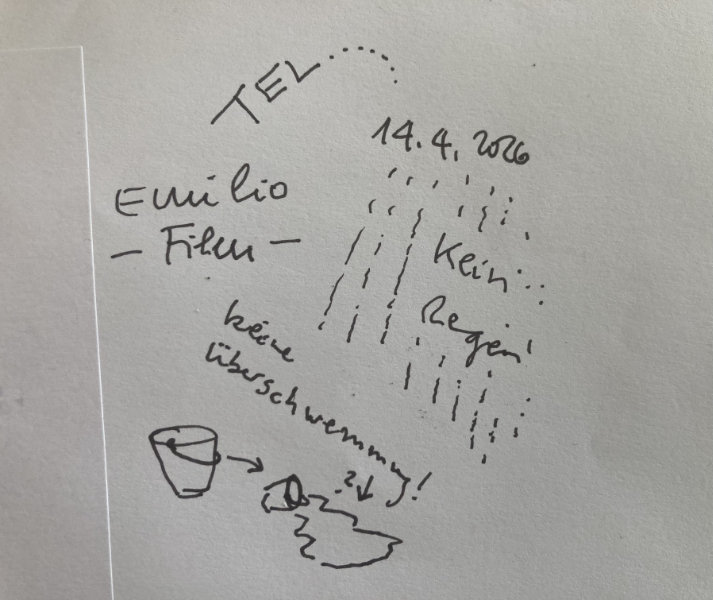 TEL
14.4.2026
Emilio
– Film –
Kein
Regen!
keine
überschwemmung!
?